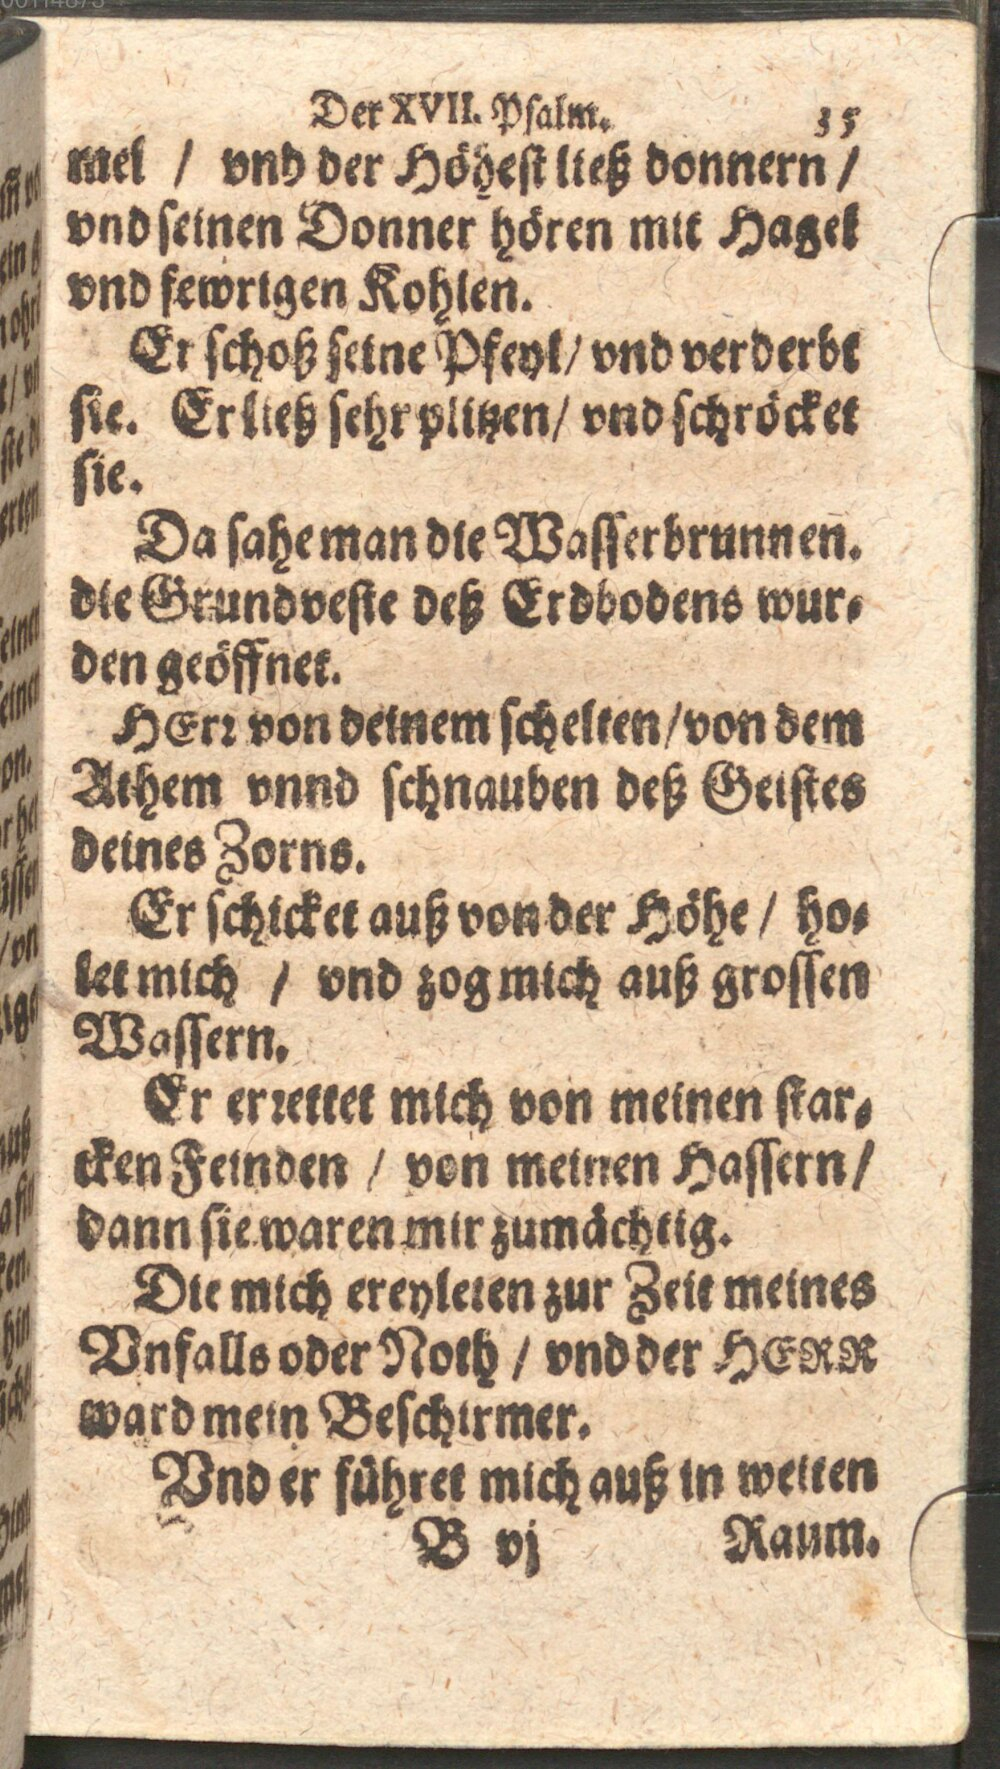 Der XVII. Psalm. 35
mel / vnd der Höhest ließ donnern /
vnd seinen Donner hören mit Hagel
vnd fewrigen Kohlen.
Er schoß seine Pfeyl / vnd verderbt
sie. Er ließ sehr plitzen / vnd schröcket
sie.
Da sahe man die Wasserbrunnen.
die Grundveste deß Erdbodens wur-
den geöffnet.
HErr von deinem schelten / von dem
Athem vnnd schnauben deß Geistes
deines Zorns.
Er schicket auß von der Höhe / ho-
let mich / vnd zog mich auß grossen
Wassern.
Er errettet mich von meinen star-
cken Feinden / von meinen Hassern /
dann sie waren mir zumächtig.
Die mich ereyleten zur Zeit meines
Vnfalls oder Noth / vnd der HERR
ward mein Beschirmer.
Vnd er führet mich auß in weiten
B vj Raum.